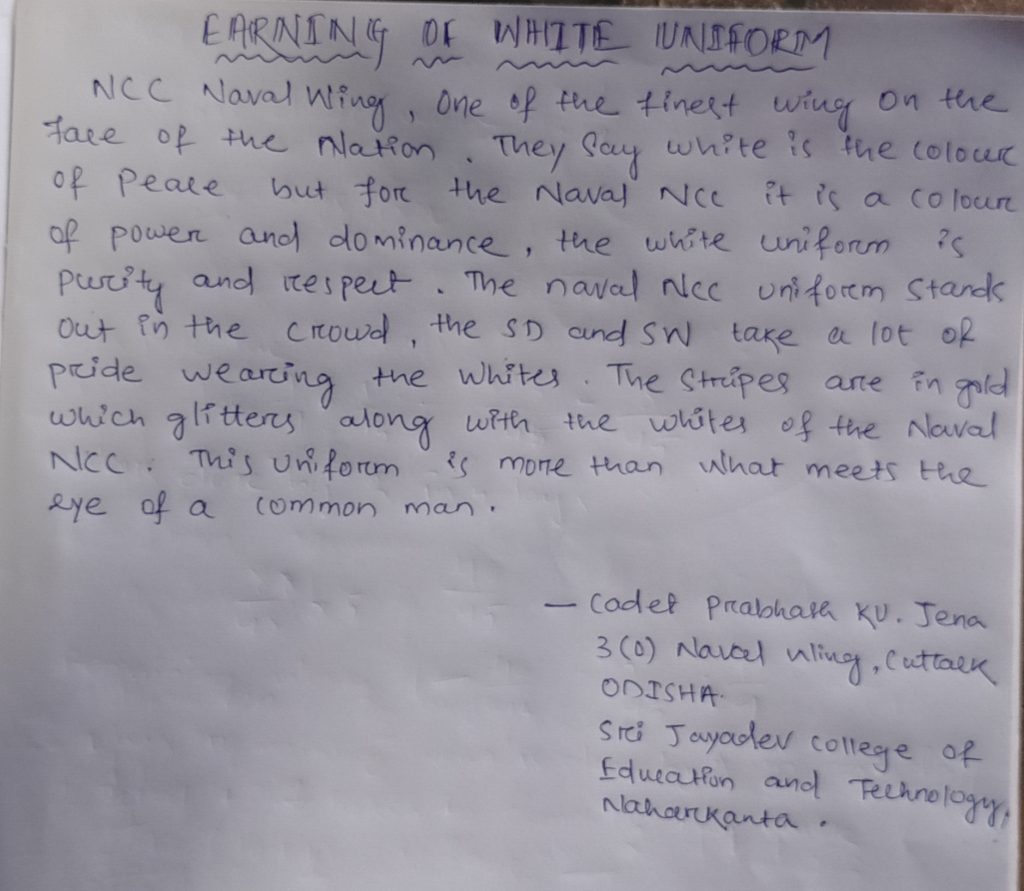 EARNING OF WHITE UNIFORM
NCC Naval Wing, One of the finest wing on the
face of the Nation. They Say white is the colour
of peace but for the Naval NCC it is a colour
of power and dominance, the white uniform is
purity and respect. The naval NCC uniform stands
out in the crowd, the SD and SW take a lot of
pride wearing the whites. The Stripes are in gold
which glitters along with the whites of the Naval
NCC. This uniform is more than what meets the
eye of a common man.
— Cadet Prabhash KU. Jena
3(O) Naval Wing, Cuttack
ODISHA.
Sri Jayadev college of
Education and Technology,
Naharkanta.